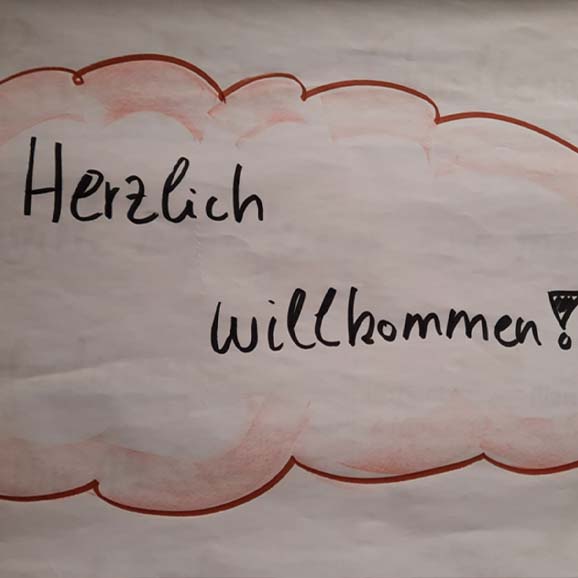 Herzlich
willkommen!